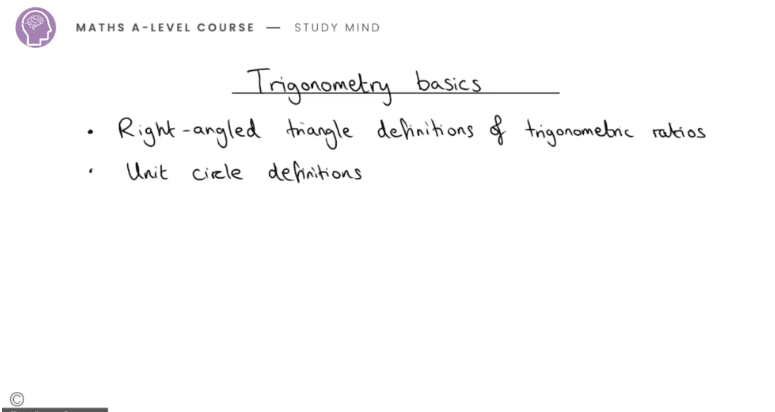 MATHS A-LEVEL COURSE — STUDY MIND
Trigonometry basics
• Right-angled triangle definitions of trigonometric ratios
• Unit circle definitions
©